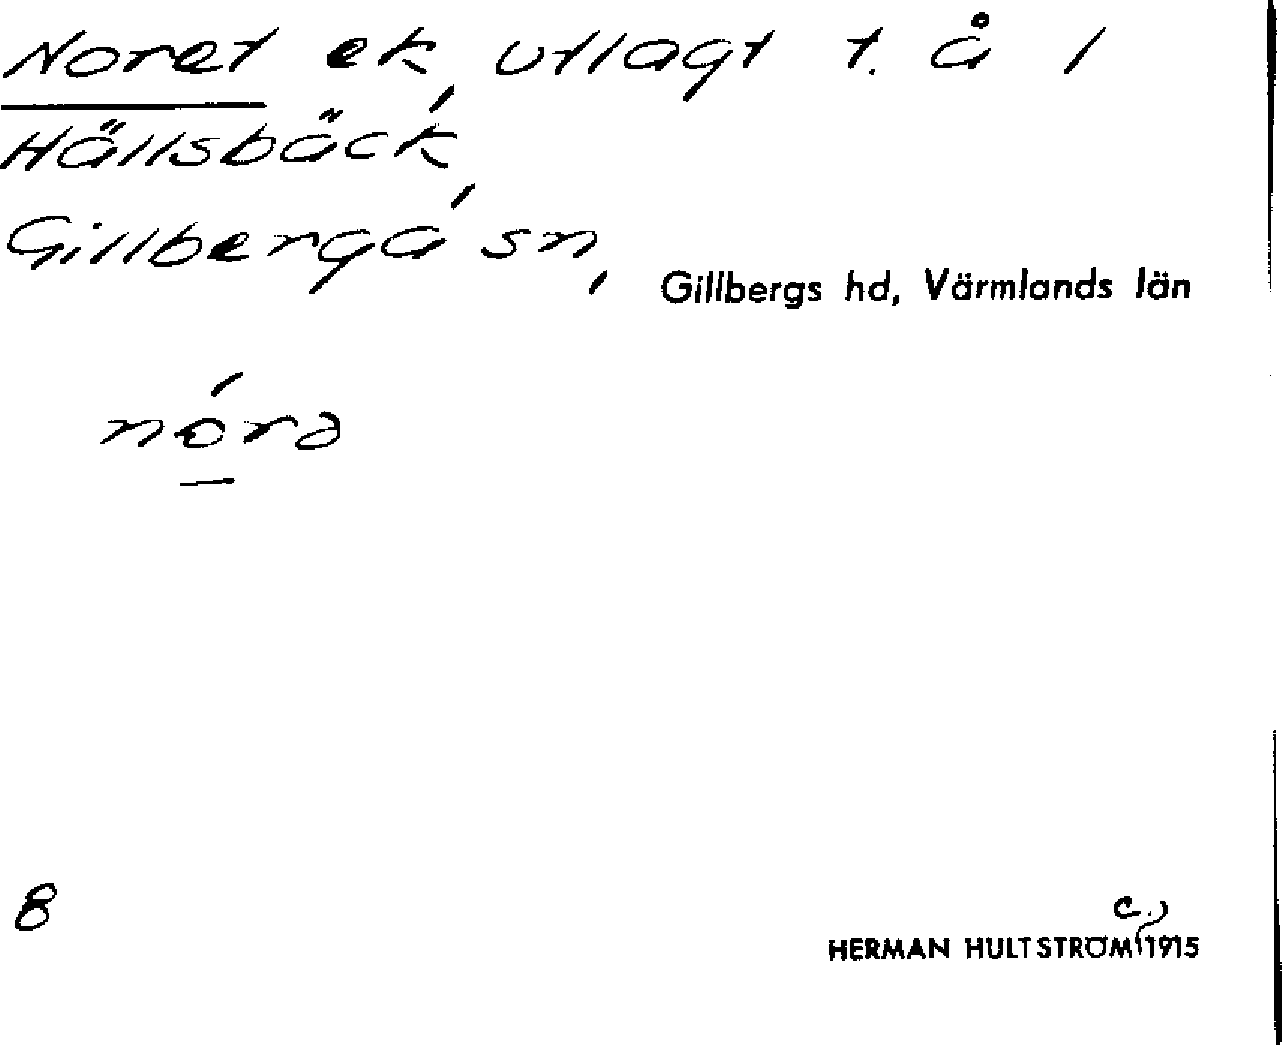 Noret ek, utlagt t. å 1
Hällsbäck,
Gillberga sn, Gillbergs hd, Värmlands län
nórə
8
c.)
HERMAN HULTSTRÖM 1915